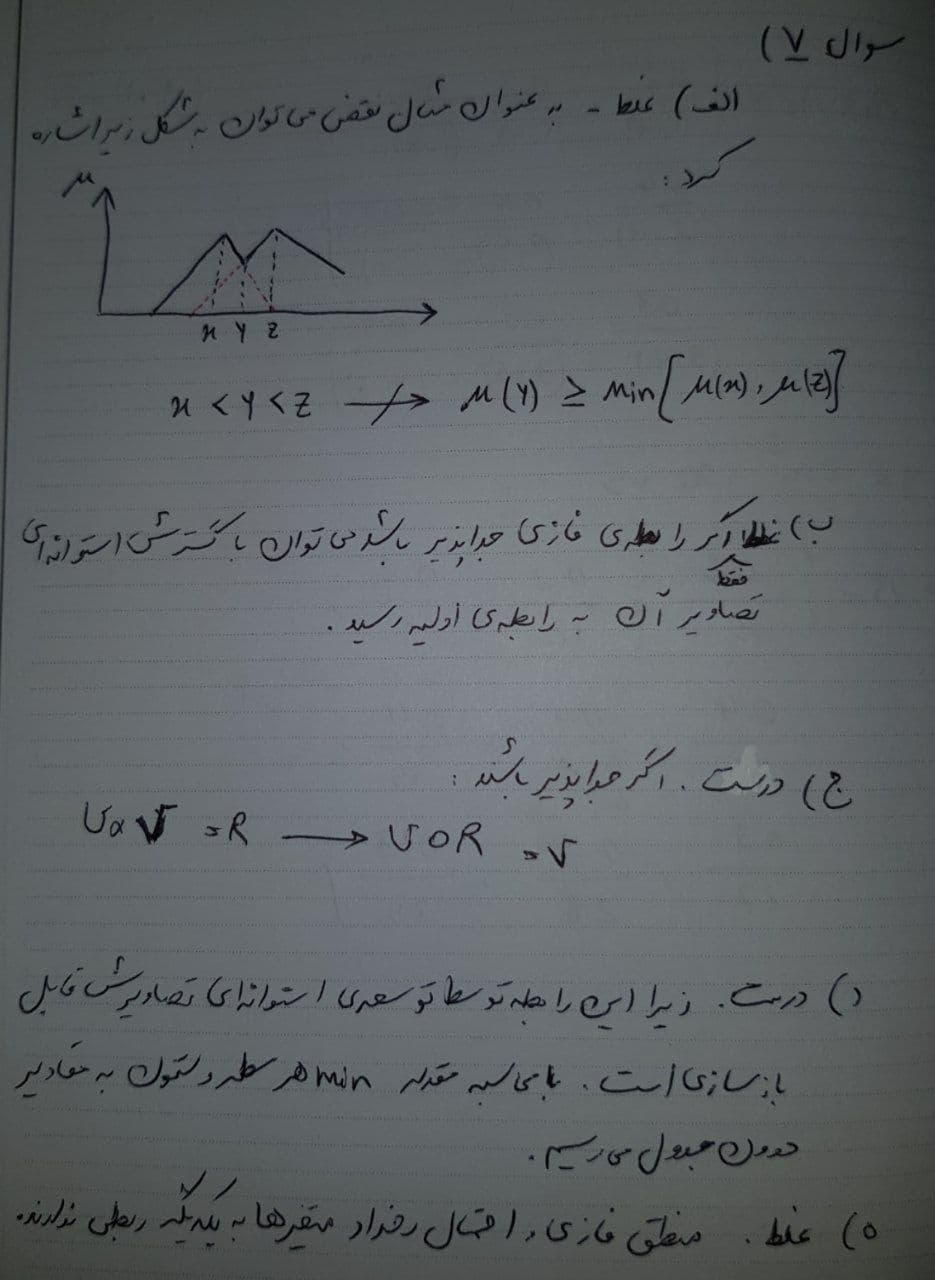 سوال ۷)
الف) غلط - به عنوان مثال نقض می توان به شکل زیر اشاره
کرد :
μ
x y z
x < y < z ↛ μ(y) ≥ min[μ(x), μ(z)]
ب) اگر رابطه‌ی فازی جداپذیر باشد می توان با گسترش استوانه‌ای
فقط
تصاویر آن به رابطه‌ی اولیه رسید .
ج) درست . اگر جداپذیر باشند :
U α V = R → U o R = V
د) درست . زیرا این رابطه توسط توسعه‌ی استوانه‌ای تصاویرش قابل
بازسازی است . با محاسبه مقدار min هر سطر و ستون به مقادیر
درون جدول می رسیم .
ه) غلط . منطق فازی و احتمال رخداد متغیرها به یکدیگر ربطی ندارند.